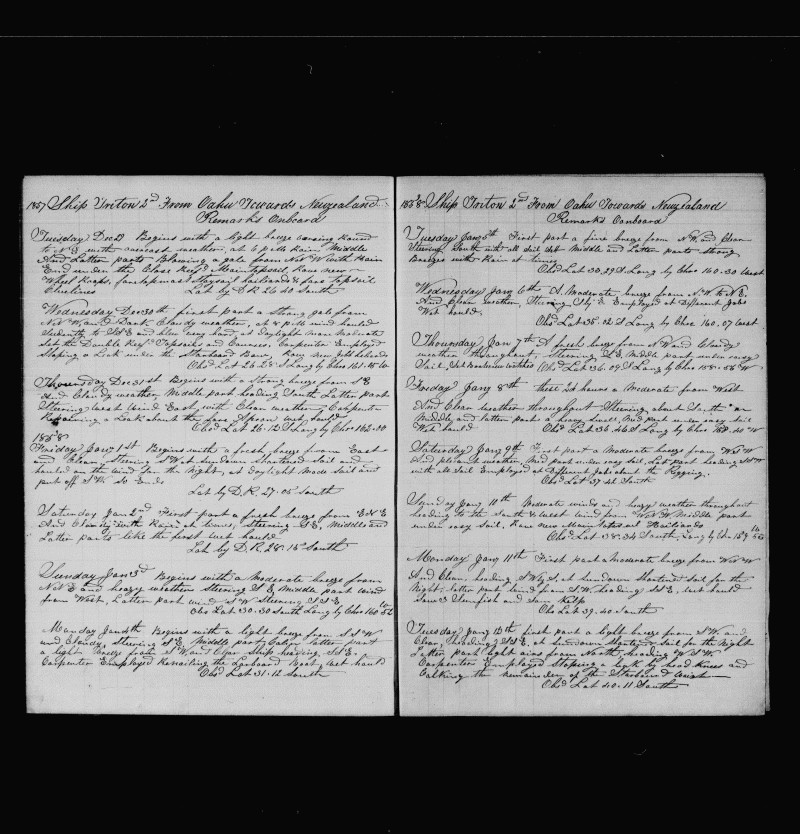 1857 Ship Triton 2nd From Oahu Towards Newzealand
Remarks Onboard
Tuesday Dec 29 Begins with a light breeze canting Round
to N E with overcast weather, at 6 P M Rain, Middle
And Latter parts Blowing a gale from N W with Rain
End under the Close Reef'd Main topsail, Rove new
Wheel Ropes, foretopmast Staysail haliards & fore topsail
Buntlines Lat by D. R 26 40 South
Wednesday Dec 30th first part a Strong gale from
N W and Dark Cloudy weather, at 8 P M wind hauled
Suddenly to and blew very hard at Daylight more Moderate
Set the Double Reef'd Topsails and Courses, Carpenter Employed
Stoping a Leak under the Starboard Bow,
Obsd Lat 26 28 S Long by Chro 161.15 W
Thoursday Dec 31st Begins with a Strong breeze from S E
And Cloudy weather, Middle part heading South Latter part
Steering West Wind East with Clear weather, Carpenter
Repairing a Leak about the Apron west hauld
Obsd Lat 26.12 S Long by Chro 162.30
1858
Friday Jany 1st Begins with a fresh breeze from East
and Clear, Steering S W at Sundown Shortened Sail and
hauled on the wind for the Night, at Daylight Made Sail and
put off S W So Ends
Lat by D. R. 27.05 South
Saturday Jan 2nd First part a fresh breeze from E N E
And Cloudy with Rain at times, Steering S E, Middle and
Latter parts like the first west hauld
Lat by D. R. 28.15 South
Sunday Jan 3d Begins with a Moderate breeze from
N E and heavy weather Steering S E, Middle part wind
from West, Latter part wind S W Steering S S E
Obsd Lat 30.30 South Long by Chro 160.52 W
Monday Jan 4th Begins with a light breeze from S S W
and Cloudy Steering S E, Middle part Calm latter part
a light breeze from S W and Clear Ship heading S S E.
Carpenter Employed Larboard Boat, west hauld
Obsd Lat 31.12 South
1858 Ship Triton 2nd From Oahu Towards Newzealand
Remarks Onboard
Tuesday Jan 5th First part a fine breeze from N W, and Clear
Steering South with all Sail Set Middle and Latter parts Strong
Breezes with Rain at times
Obsd Lat 30.29 S Long by Chro 160.30 West
Wednesday Jany 6th A Moderate breeze from N. W to N E.
And Clear weather, Steering S by E Employed at Different Jobs
West hauld. Obsd Lat 35.02 S Long by Chro 160.07 West
Thoursday Jan 7th A fresh breeze from N W and Cloudy
weather throughout, Steering S E Middle part under easy
Sail, Obsd Lat 36.09 S Long by Chro 158.55 W
Friday Jany 8th these 24 hours a Moderate from West
And Clear weather throughout Steering about South
Middle and latter parts a heavy Swell, Mid part under easy sail
West hauld Obsd Lat 36.46 S Long by Chro 158.40 W
Saturday Jany 9th First part a Moderate breeze from W S W
And pleasant weather, Mid part under easy Sail, Latr part heading S S W
with all Sail Employed at Different Jobs about the Rigging,
Obsd Lat 37.42 South
Sunday Jany 10th Moderate winds and heavy weather throughout
heading to the South & West wind from W N W Middle part
under easy Sail, Rove new Main topsail Haliards
Obsd Lat 38.34 South, Long by Chr 159.50 W
Monday Jany 11th First part a Moderate breeze from W N W
And Clear, heading S W by S, at Sundown Shortened Sail for the
Night, latter part wind from S W, heading S S E, west hauld
Saw 3 Sunfish and Some Kelp
Obsd Lat 39.40 South
Tuesday Jany 12th first part a light breeze from S W. and
Clear, heading S S E, at Sundown Shortened Sail for the Night
Latter part light airs from North, heading W S W.
Carpenter Employed Stoping a leak by head Knees and
Calking the remainder of the Starboard Waist
Obsd Lat 40.11 South